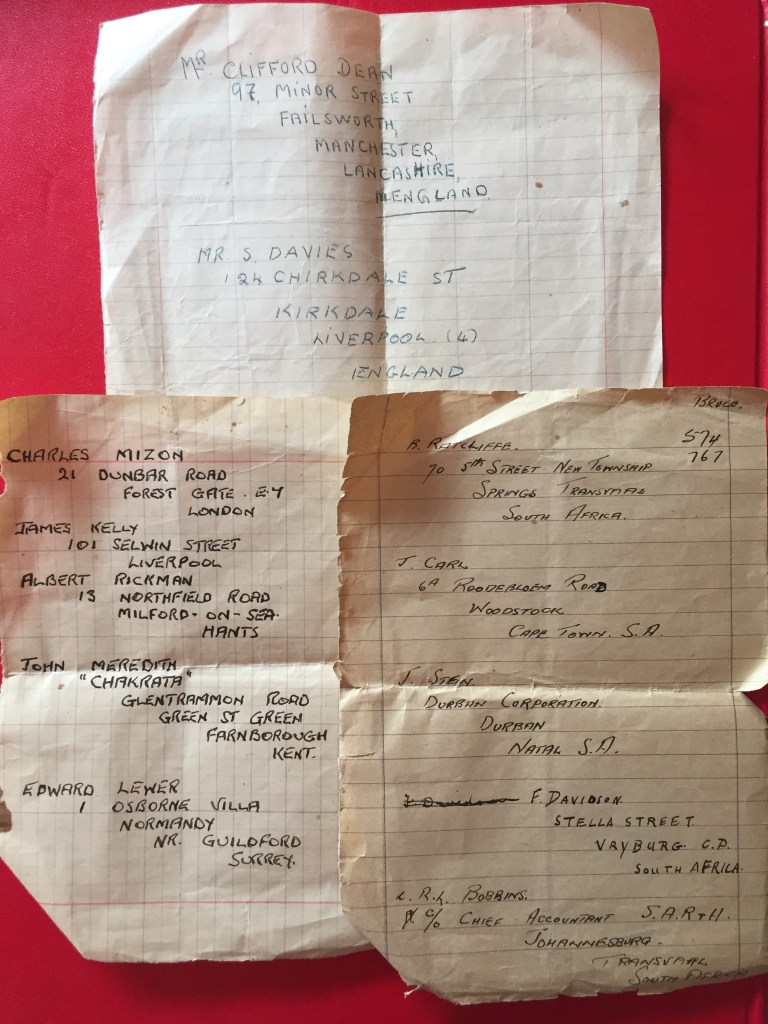 MR. CLIFFORD DEAN
97, MINOR STREET
FAILSWORTH,
MANCHESTER,
LANCASHIRE,
ENGLAND.
MR S. DAVIES
124 CHIRKDALE ST
KIRKDALE
LIVERPOOL (4)
ENGLAND
CHARLES MIZON
21 DUNBAR ROAD
FOREST GATE. E.7
LONDON
JAMES KELLY
101 SELWIN STREET
LIVERPOOL
ALBERT RICKMAN
13 NORTHFIELD ROAD
MILFORD-ON-SEA.
HANTS
JOHN MEREDITH
"CHAKRATA"
GLENTRAMMON ROAD
GREEN ST GREEN
FARNBOROUGH
KENT.
EDWARD LEWER
1 OSBORNE VILLA
NORMANDY
NR. GUILDFORD
SURREY.
BRUCE.
574
767
B. RATCLIFFE.
70 5th STREET NEW TOWNSHIP
SPRINGS TRANSVAAL
SOUTH AFRICA.
J. CARL
6A ROODEBLOEM ROAD
WOODSTOCK
CAPE TOWN. S.A.
J. STEN
DURBAN CORPORATION.
DURBAN
NATAL S.A.
F. DAVIDSON.
STELLA STREET
VRYBURG C.P.
SOUTH AFRICA.
R.L. BOBBINS.
c/o CHIEF ACCOUNTANT S.A.R+H.
JOHANNESBURG.
TRANSVAAL
SOUTH AFRICA